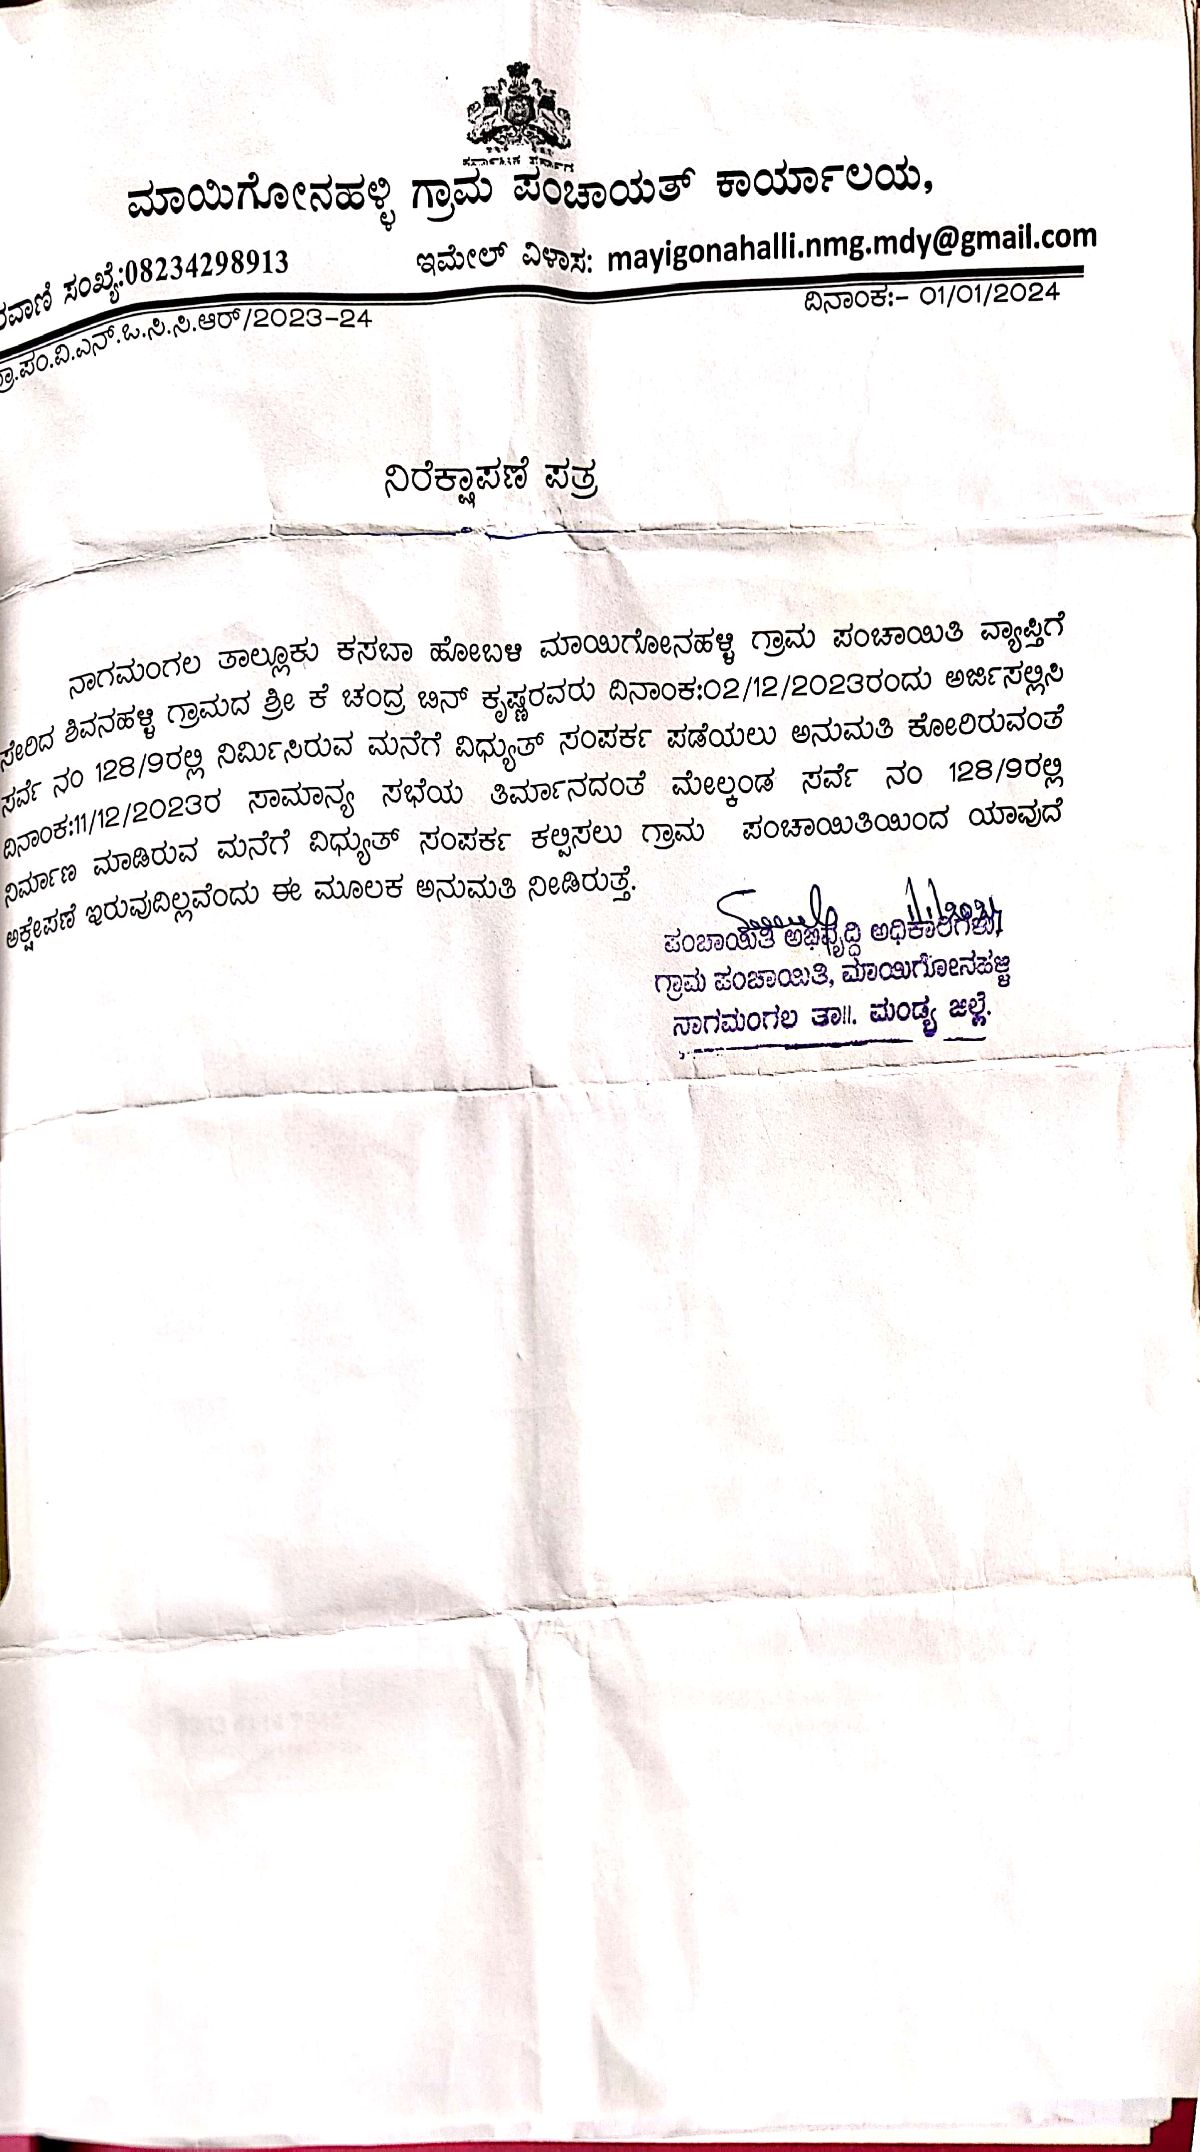 ಕರ್ನಾಟಕ ಸರ್ಕಾರ
ಮಾಯಿಗೋನಹಳ್ಳಿ ಗ್ರಾಮ ಪಂಚಾಯತ್ ಕಾರ್ಯಾಲಯ,
ರವಾಣಿ ಸಂಖ್ಯೆ:08234298913 ಇಮೇಲ್ ವಿಳಾಸ: mayigonahalli.nmg.mdy@gmail.com
ಗ್ರಾ.ಪಂ.ವಿ.ಎನ್.ಒ.ಸಿ.ಸಿ.ಆರ್/2023-24 ದಿನಾಂಕ:- 01/01/2024
ನಿರೆಕ್ಷಾಪಣೆ ಪತ್ರ
ನಾಗಮಂಗಲ ತಾಲ್ಲೂಕು ಕಸಬಾ ಹೋಬಳಿ ಮಾಯಿಗೋನಹಳ್ಳಿ ಗ್ರಾಮ ಪಂಚಾಯಿತಿ ವ್ಯಾಪ್ತಿಗೆ
ಸೇರಿದ ಶಿವನಹಳ್ಳಿ ಗ್ರಾಮದ ಶ್ರೀ ಕೆ ಚಂದ್ರ ಬಿನ್ ಕೃಷ್ಣರವರು ದಿನಾಂಕ:02/12/2023ರಂದು ಅರ್ಜಿಸಲ್ಲಿಸಿ
ಸರ್ವೆ ನಂ 128/9ರಲ್ಲಿ ನಿರ್ಮಿಸಿರುವ ಮನೆಗೆ ವಿಧ್ಯುತ್ ಸಂಪರ್ಕ ಪಡೆಯಲು ಅನುಮತಿ ಕೋರಿರುವಂತೆ
ದಿನಾಂಕ:11/12/2023ರ ಸಾಮಾನ್ಯ ಸಭೆಯ ತಿರ್ಮಾನದಂತೆ ಮೇಲ್ಕಂಡ ಸರ್ವೆ ನಂ 128/9ರಲ್ಲಿ
ನಿರ್ಮಾಣ ಮಾಡಿರುವ ಮನೆಗೆ ವಿಧ್ಯುತ್ ಸಂಪರ್ಕ ಕಲ್ಪಿಸಲು ಗ್ರಾಮ ಪಂಚಾಯಿತಿಯಿಂದ ಯಾವುದೆ
ಅಕ್ಷೇಪಣೆ ಇರುವುದಿಲ್ಲವೆಂದು ಈ ಮೂಲಕ ಅನುಮತಿ ನೀಡಿರುತ್ತೆ.
ಪಂಚಾಯಿತಿ ಅಭಿವೃದ್ಧಿ ಅಧಿಕಾರಿಗಳು,
ಗ್ರಾಮ ಪಂಚಾಯಿತಿ, ಮಾಯಿಗೋನಹಳ್ಳಿ
ನಾಗಮಂಗಲ ತಾ||. ಮಂಡ್ಯ ಜಿಲ್ಲೆ.